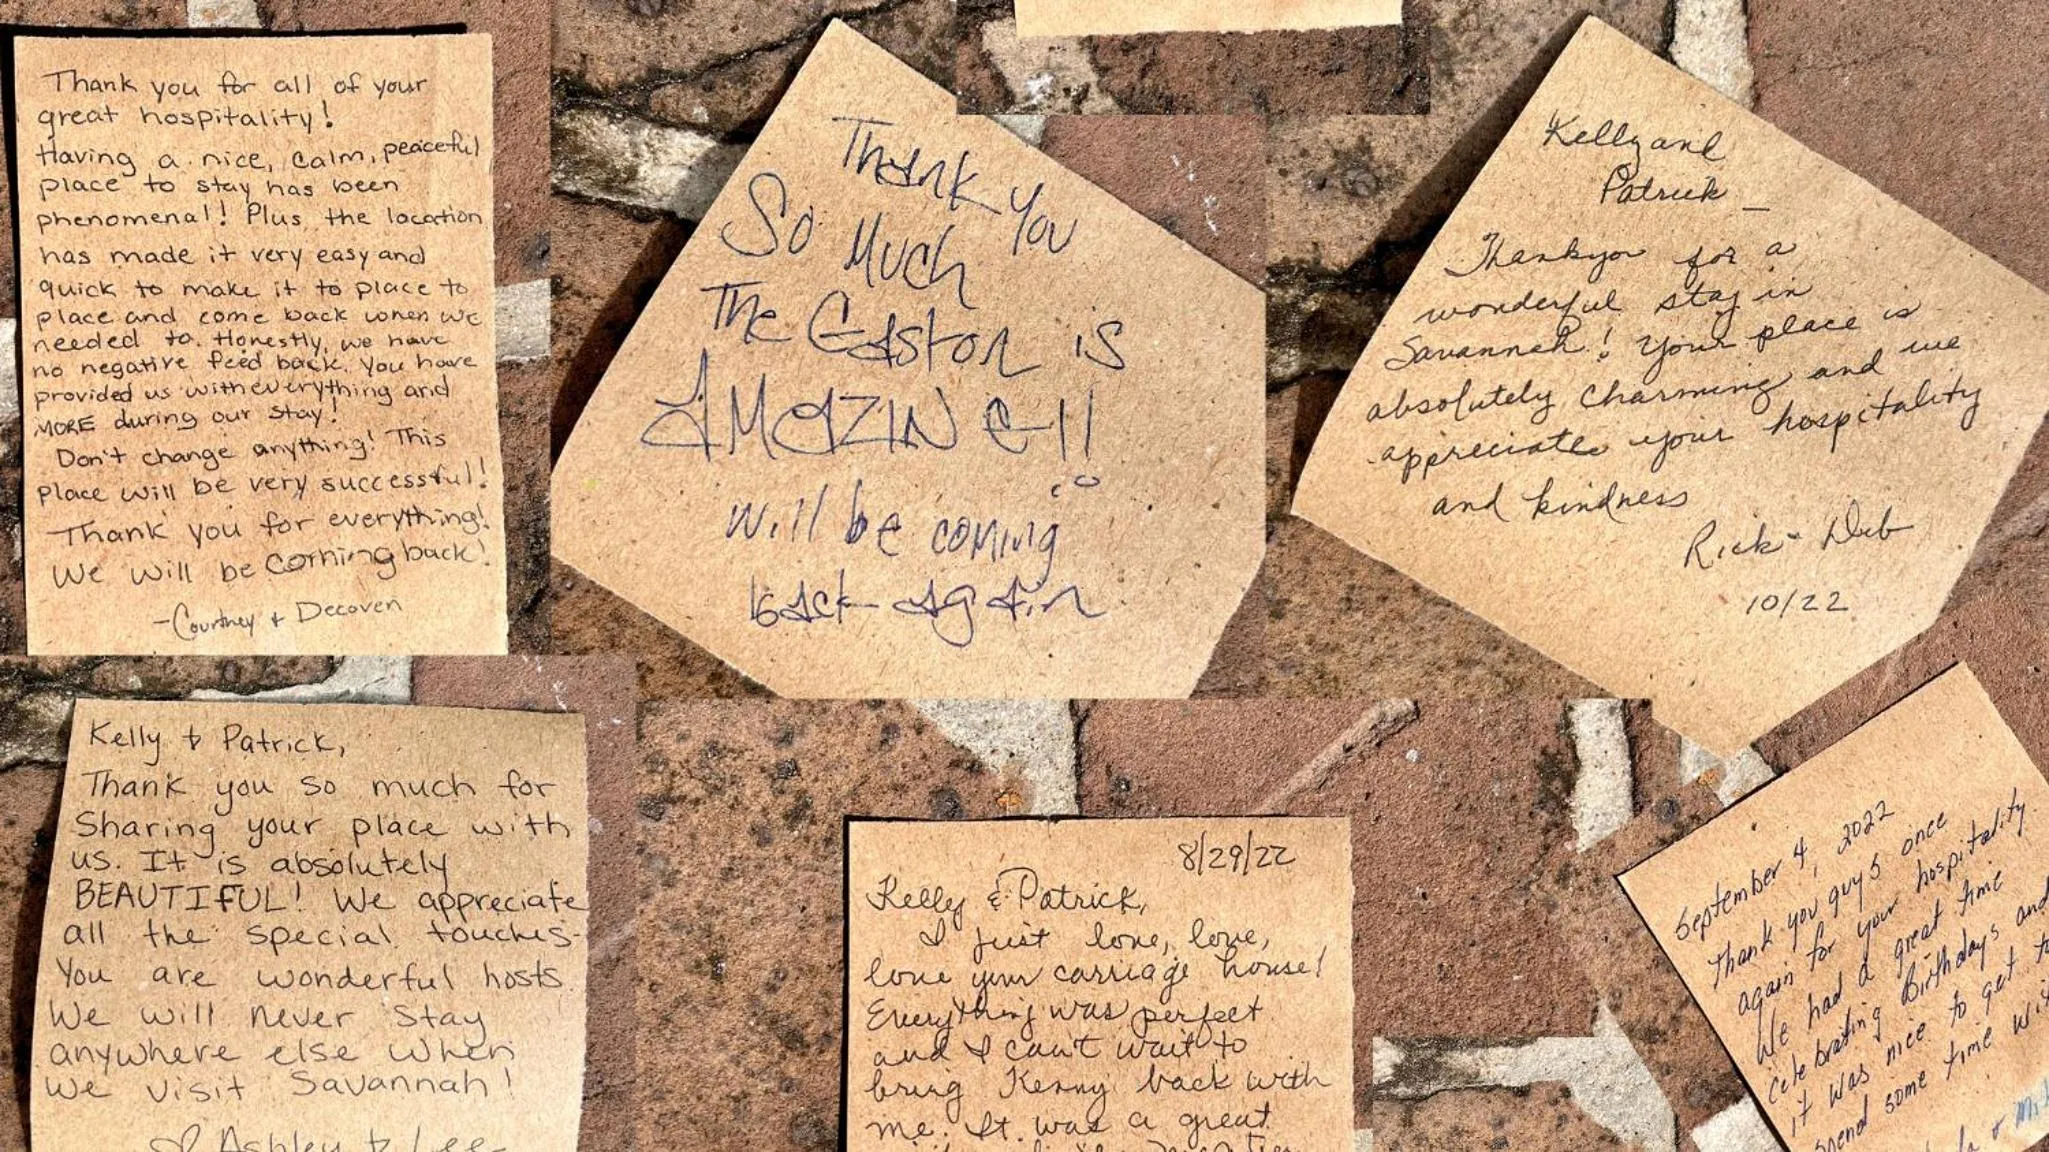 Thank you for all of your
great hospitality!
Having a nice, calm, peaceful
place to stay has been
phenomenal! Plus the location
has made it very easy and
quick to make it to place to
place and come back when we
needed to. Honestly, we have
no negative feed back. You have
provided us with everything and
MORE during our stay!
Don't change anything! This
place will be very successful!
Thank you for everything!
We will be coming back!
-Courtney & Decoven
Thank You
So Much
The Gaston is
AMAZING!!
will be coming
back again
Kelly and
Patrick –
Thankyou for a
wonderful stay in
Savannah! Your place is
absolutely charming and we
appreciate your hospitality
and kindness
Rick & Deb
10/22
Kelly & Patrick,
Thank you so much for
Sharing your place with
us. It is absolutely
BEAUTIFUL! We appreciate
all the special touches-
You are wonderful hosts.
We will never stay
anywhere else when
we visit Savannah!
♡ Ashley & Lee
8/29/22
Kelly & Patrick,
I just love, love,
love your carriage house!
Everything was perfect
and I can't wait to
bring Kenny back with
me. It was a great
September 4, 2022
Thank you guys once
again for your hospitality.
We had a great time
celebrating Birthdays and
it was nice to get to
spend some time